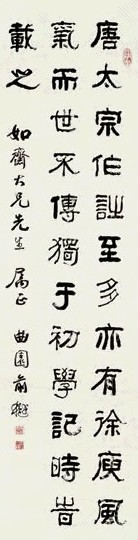 唐太宗作詩至多亦有徐庾風
氣而世不傳獨于初學記時時
載之
如齋大兄先生 属正 曲園俞樾